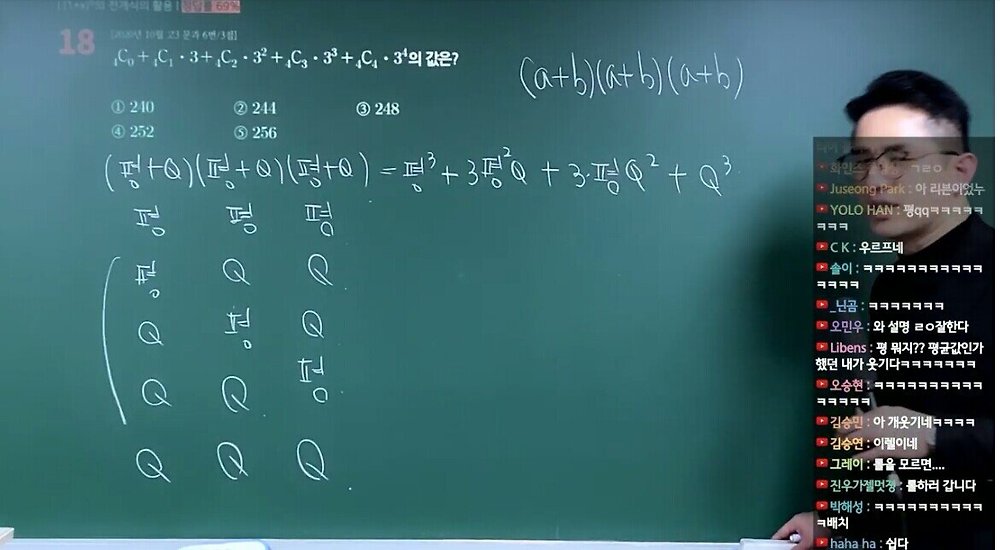 의 전개식의 활용 | 정답률 69%
18
[2020년 10월 고3 문과 6번/3점]
₄C₀+₄C₁·3+₄C₂·3²+₄C₃·3³+₄C₄·3⁴의 값은?
① 240 ② 244 ③ 248
④ 252 ⑤ 256
(a+b)(a+b)(a+b)
(평+Q)(평+Q)(평+Q) = 평³ + 3평²Q + 3·평Q² + Q³
평 평 평
평 Q Q
Q 평 Q
Q Q 평
Q Q Q
ㄱㄹㅇ
Juseong Park : 아 리븐이었누
YOLO HAN : 평qqㅋㅋㅋㅋㅋ
ㅋㅋㅋ
C K : 우르프네
솔이 : ㅋㅋㅋㅋㅋㅋㅋㅋㅋㅋㅋ
ㅋㅋㅋㅋ
_닌곰 : ㅋㅋㅋㅋㅋㅋㅋ
오민우 : 와 설명 ㄹㅇ잘한다
Libens : 평 뭐지?? 평균값인가
했던 내가 웃기다ㅋㅋㅋㅋㅋㅋㅋ
오승현 : ㅋㅋㅋㅋㅋㅋㅋㅋㅋㅋ
ㅋㅋㅋㅋㅋ
김승민 : 아 개웃기네ㅋㅋㅋㅋ
김승연 : 이렐이네
그레이 : 롤을 모르면....
진우가젤멋졍 : 롤하러 갑니다
박해성 : ㅋㅋㅋㅋㅋㅋㅋㅋㅋㅋ
ㅋ배치
haha ha : 쉽다